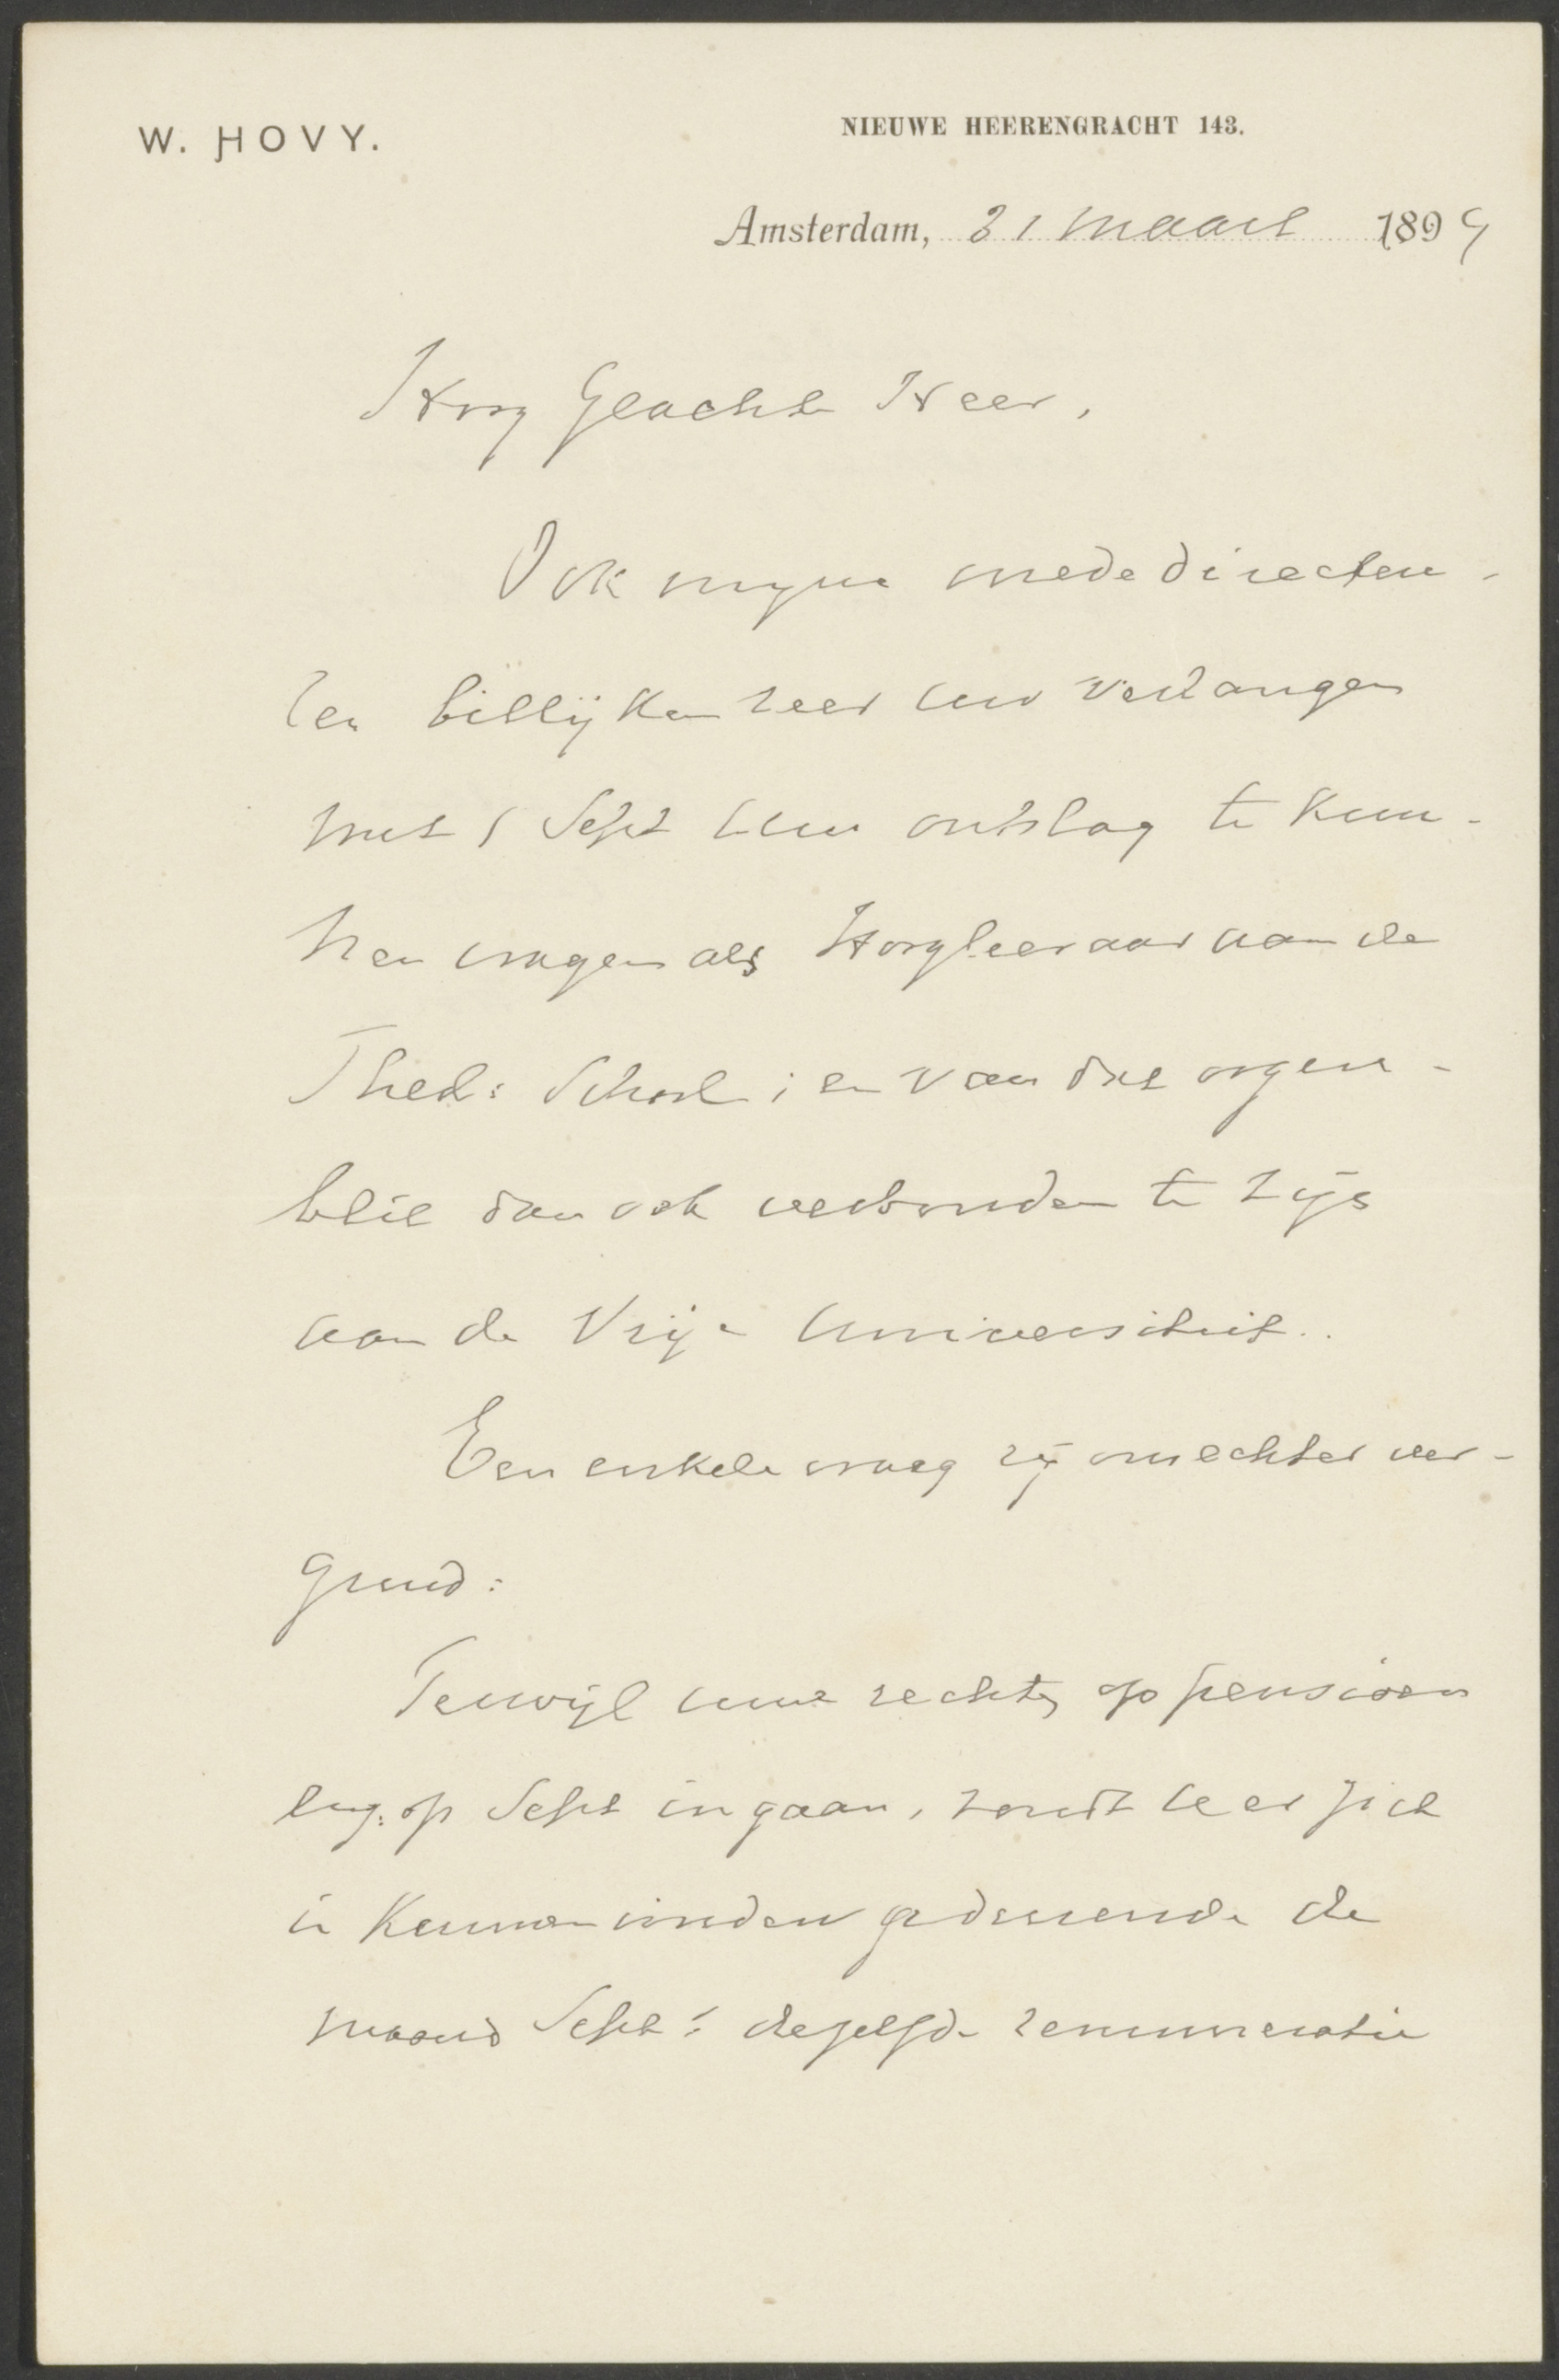 W. HOVY.
NIEUWE HEERENGRACHT 143.
Amsterdam, 21 Maart 1894
Hoog Geachte Heer,
Ook mijne mededirecteu-
ren billijken zeer uw verlangen
met 1 Sept uw ontslag te kun-
nen vragen als Hoogleeraar aan de
Theol: School; en van dat ogen-
blik dan ook verbonden te zijn
aan de Vrije Universiteit..
Een enkele vraag zij ons echter ver-
gund:
Terwijl uwe rechten op pensioen
ing. op Sept ingaan, zoudt U er zich
in kunnen vinden gedurende de
maand Sept: dezelfde remuneratie